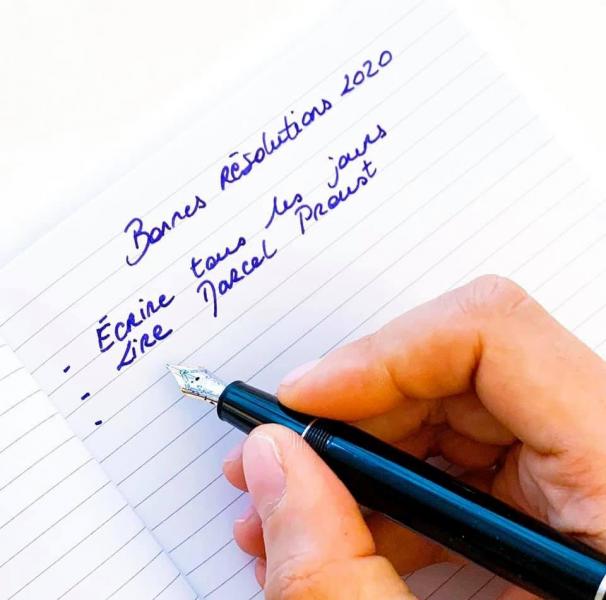 Bonnes résolutions 2020
- Écrire tous les jours
- Lire Marcel Proust
-